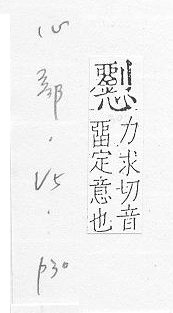 力求切音
畱定意也
心部.V5.p30